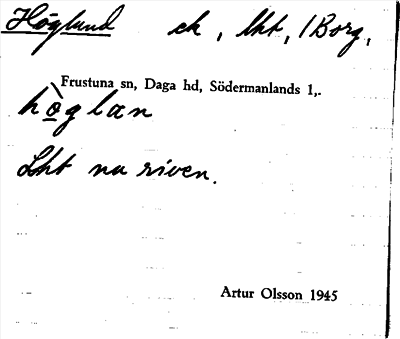 Höglund ek, lht, 1 Borg,
Frustuna sn, Daga hd, Södermanlands l,.
hòglan
Lht nu riven.
Artur Olsson 1945